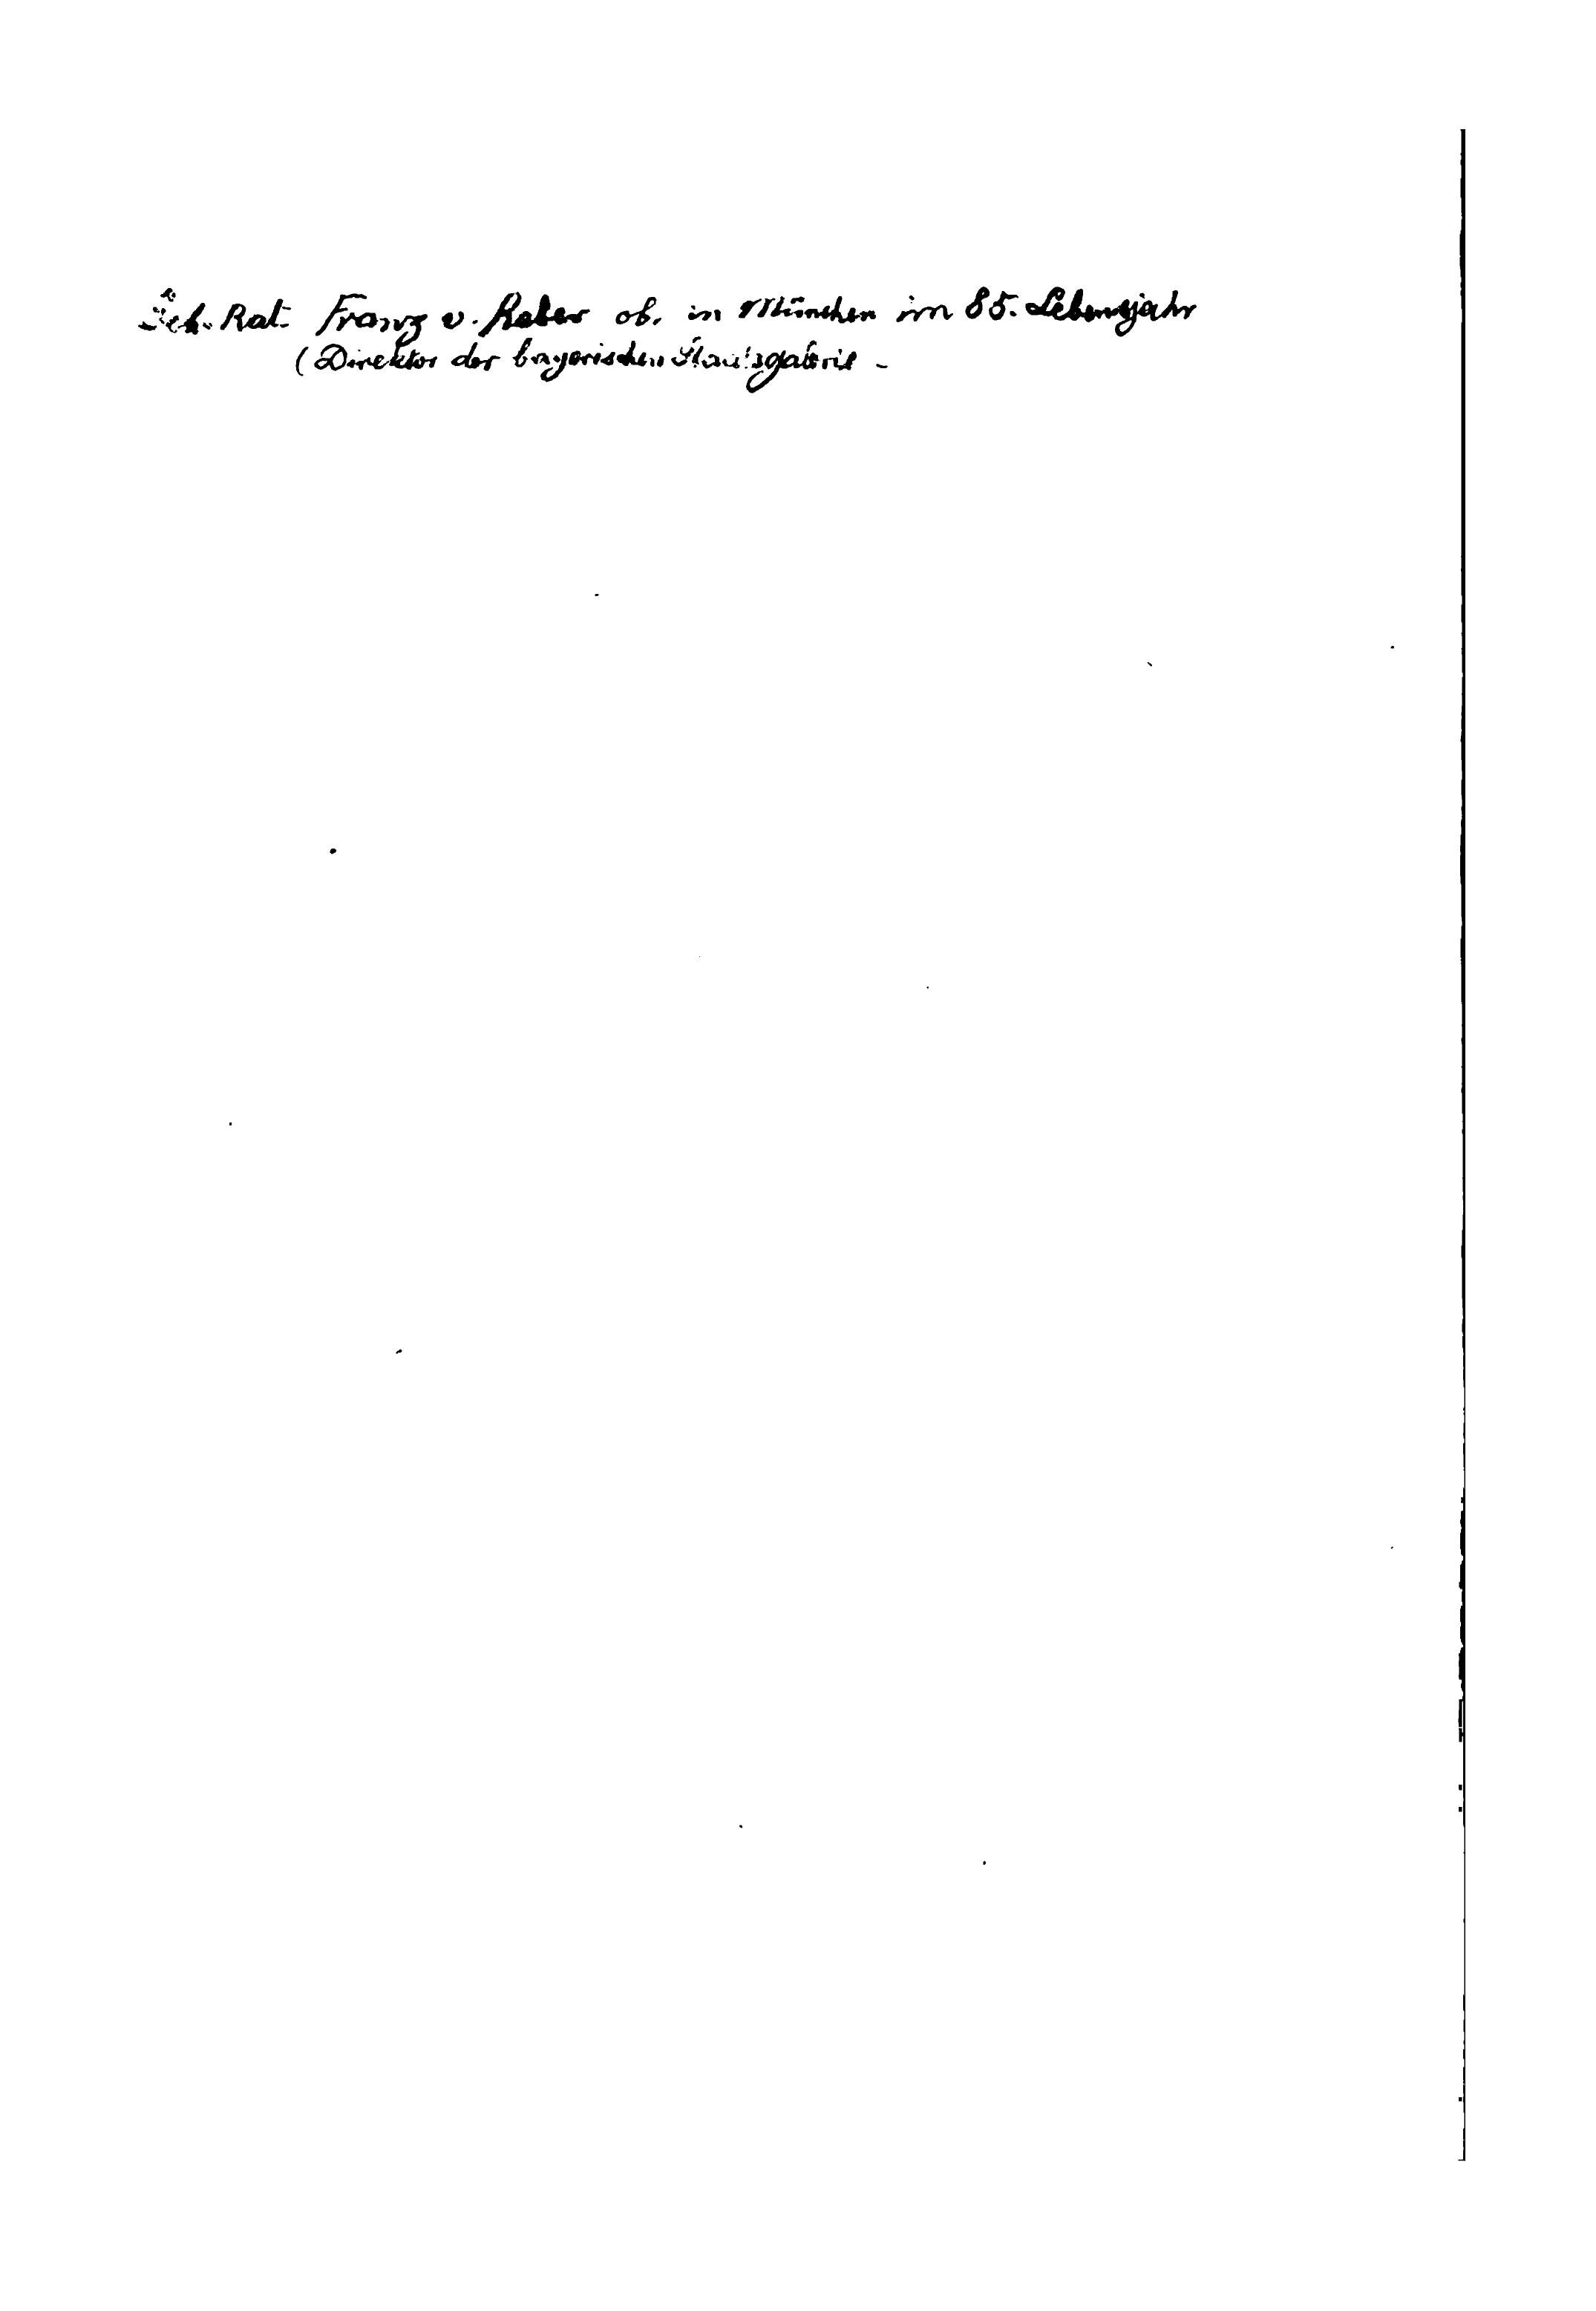 Geh. Rat. Franz v. Reber ob. in München im 85. Lebensjahr
(Direktor der bayerischen Staatsgalerie -